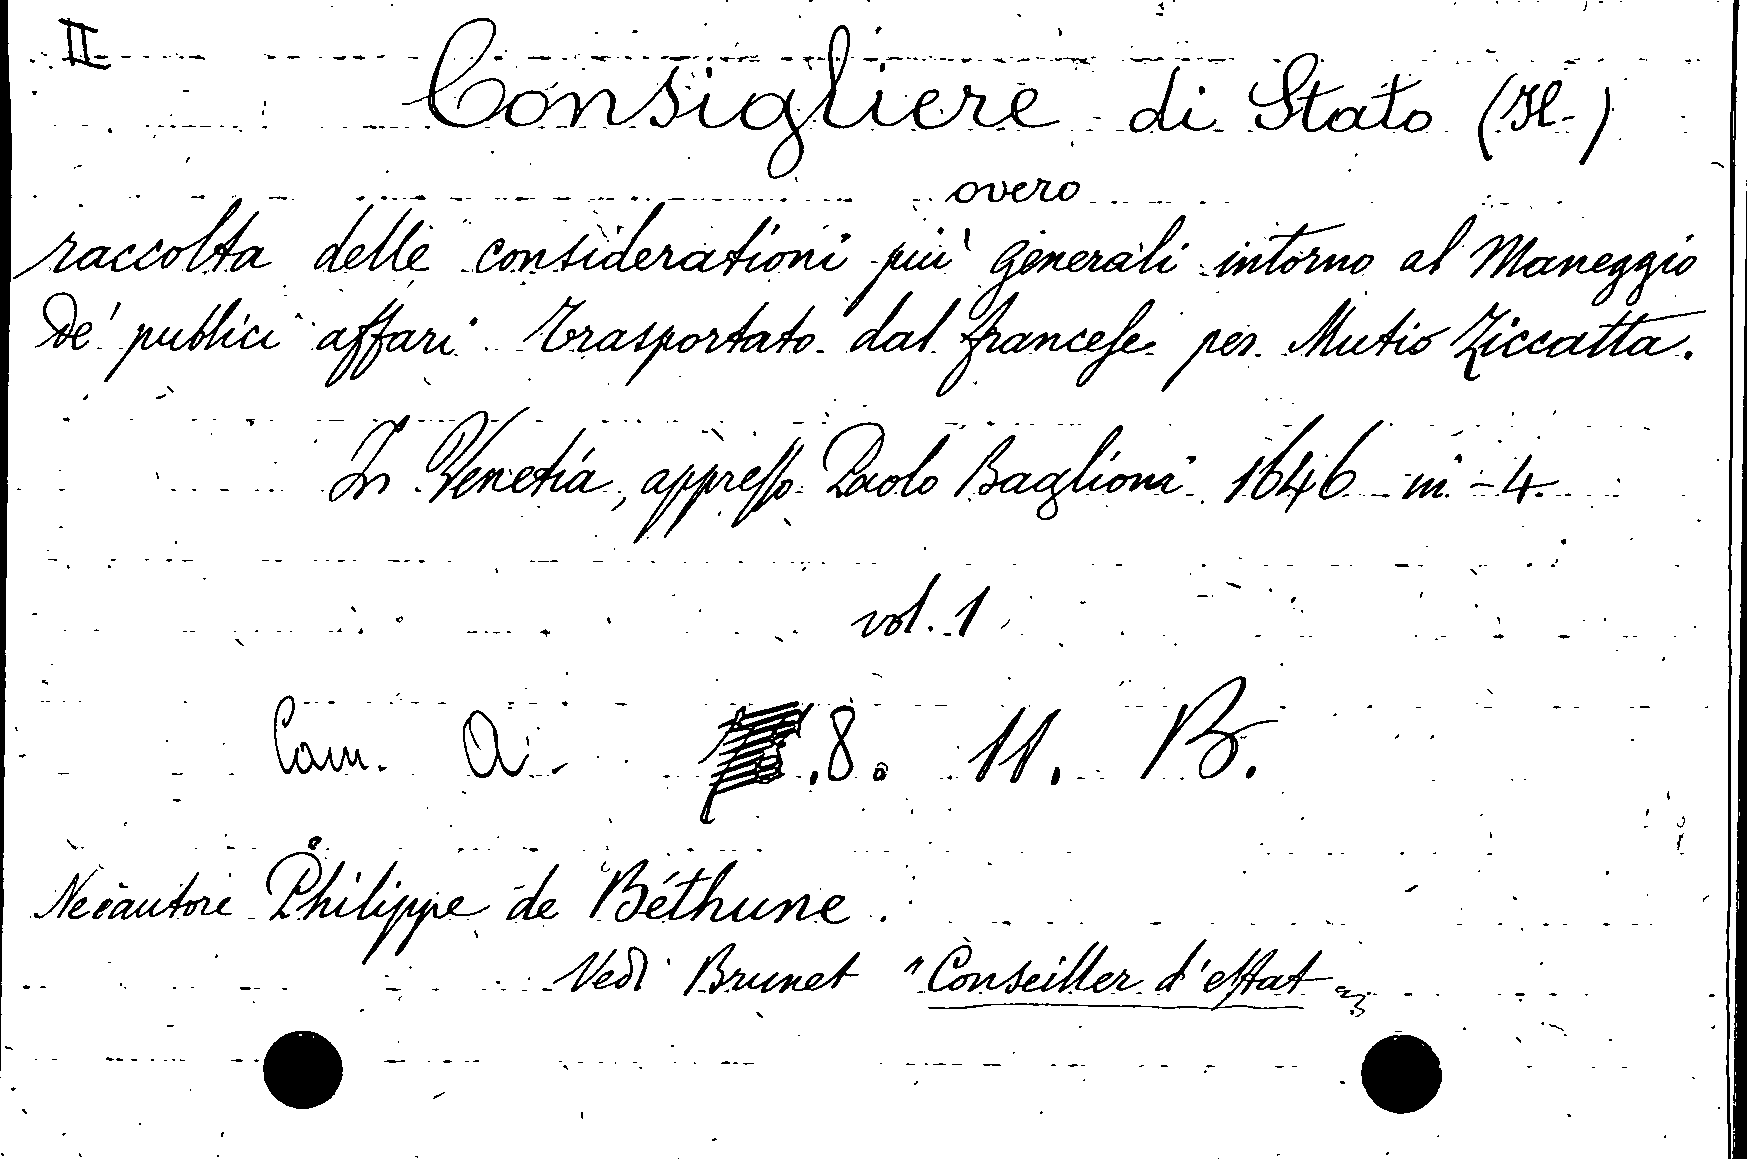 II
Consigliere di Stato (Il.)
overo
raccolta delle considerationi più generali intorno al Maneggio
De' publici affari Trasportato dal franceſe per Mutio Ziccatta.
In Venetia, appreſſo Paolo Baglioni 1646 in-4.
vol. 1
Cam. A. .8. 11. B.
Ne è autore Philippe de Béthune.
Vedi Brunet "Conseiller d'eſtat"